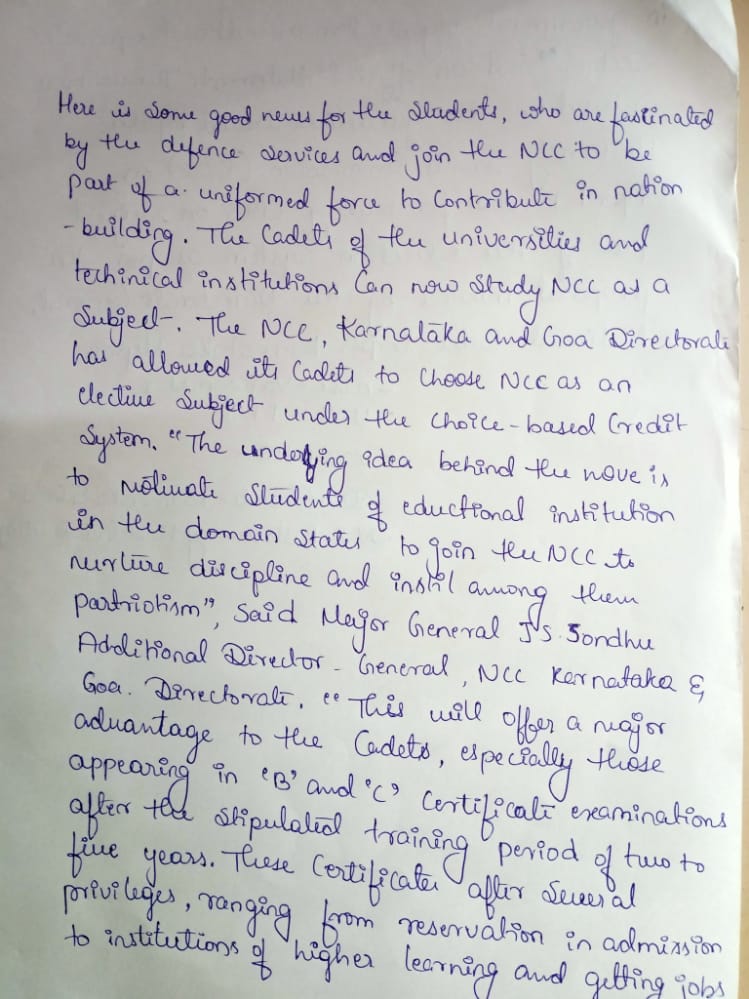 Here is some good news for the students, who are fastinated
by the defence services and join the NCC to be
part of a uniformed force to contribute in nation
-building. The Cadets of the universities and
techinical institutions Can now study NCC as a
Subject. The NCC, Karnataka and Goa Directorate
has allowed its Cadets to choose NCC as an
elective Subject under the choice-based Credit
System. "The underlying idea behind the nove is
to motivate Students of eductional institution
in the domain states to join the NCC to
nurture discipline and instil among them
partriotism", Said Major General J S. Sondhu
Additional Director - General, NCC Karnataka &
Goa. Directorate. "This will offer a major
advantage to the Cadets, especially those
appearing in 'B' and 'C' Certificate examinations
after the stipulated training period of two to
five years. These Certificates after several
privileges, ranging from reservation in admission
to institutions of higher learning and getting jobs